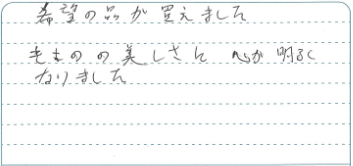 希望の品が買えました
きものの美しさに 心が明るく
なりました